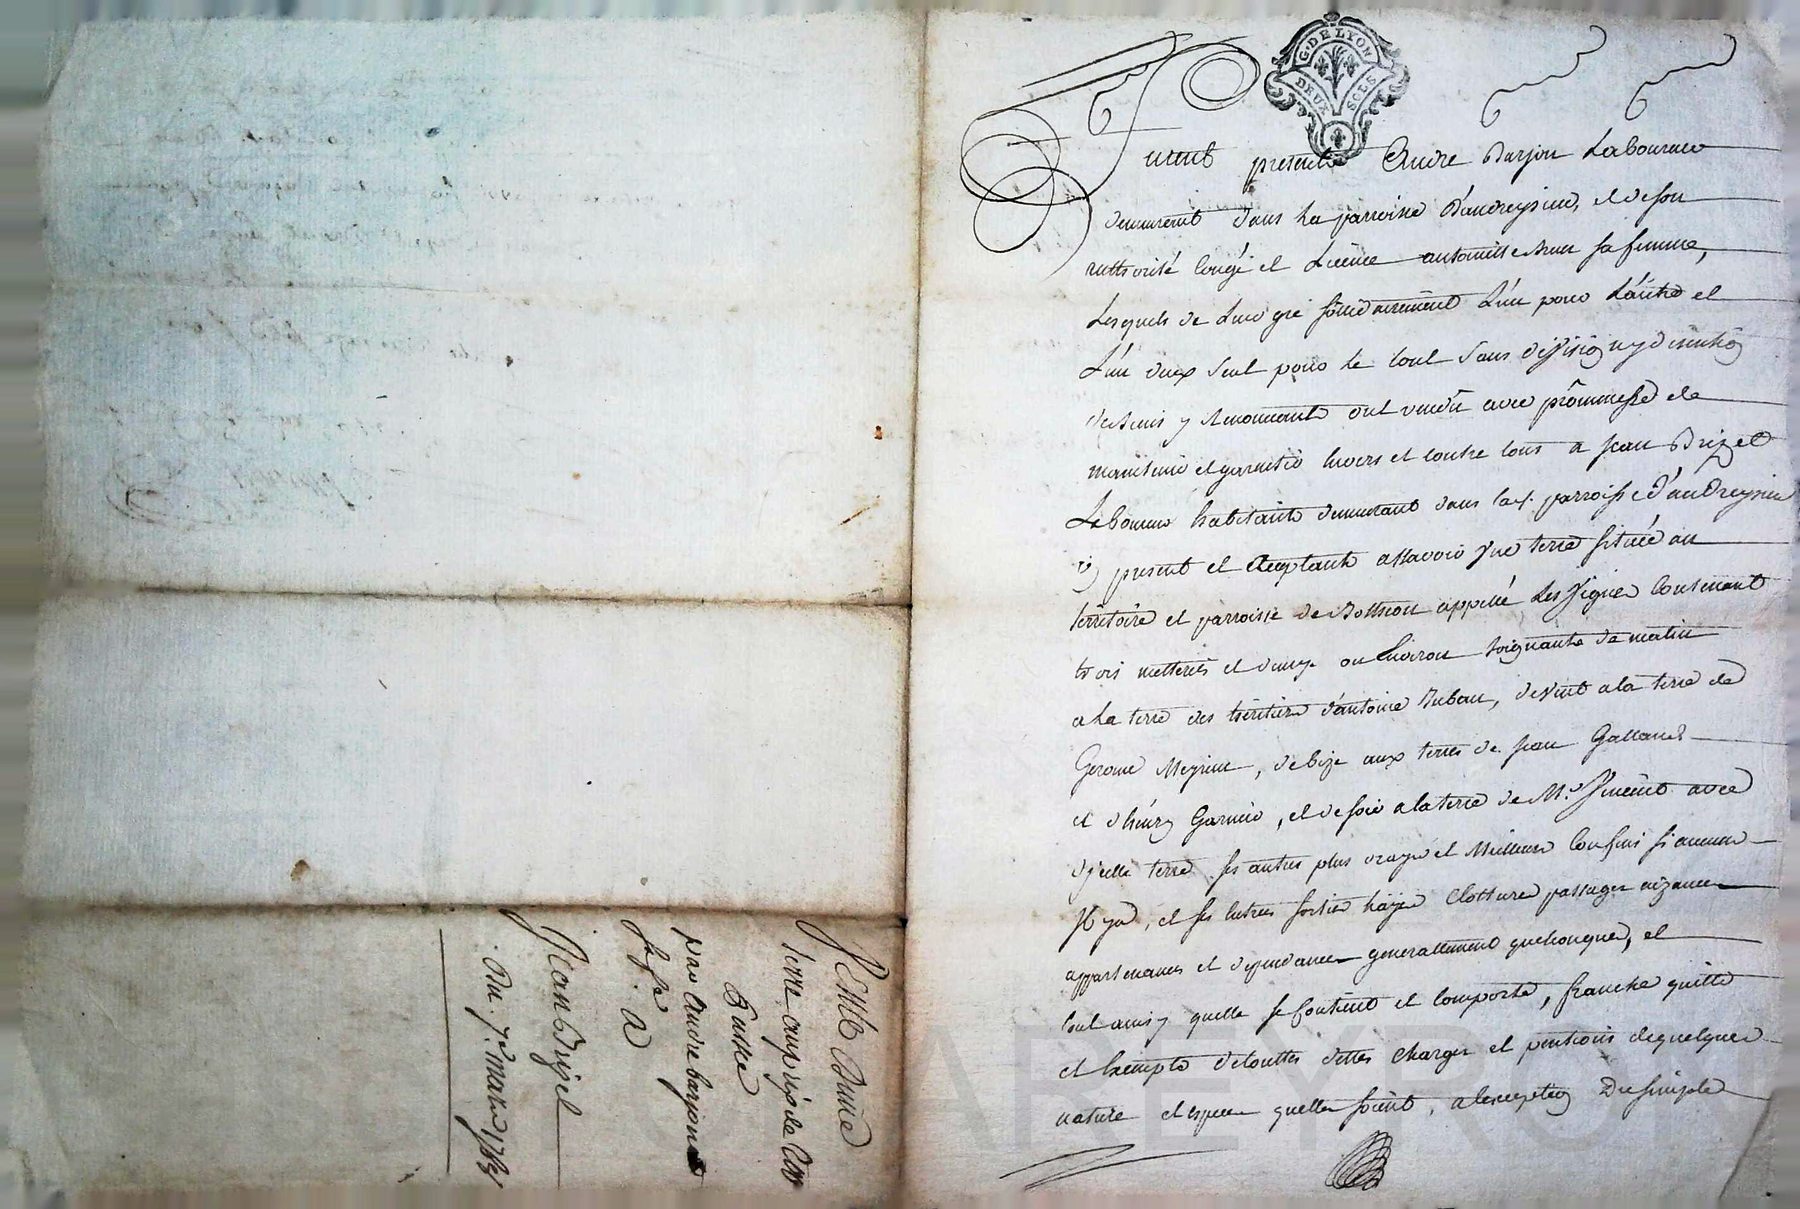 G. DE LYON
DEUX SOLS
Furent presents André Barjon Laboureur
demeurant dans la parroisse d'andreysieu, et de son
authorité congé et Licence antoinette brun sa femme,
Lesquels de Leur gré solidairement L'un pour L'autre et
L'un deux seul pour le tout sans division ny discution
de biens y Renonçants ont vendu avec prommesse de
maintenir et garantir envers et contre tous a jean Brizet
habitant demeurant dans lad. parroisse d'andreysieu
present et acceptant assavoir Une terre située au
territoire et parroisse de appellé Les Vignes Contenant
trois metterées et demye ou Environ joignante de matin
a La terre des héritiers d'antoine, de vent a la terre de
Gerome Meyrieu, de bize aux terres de jean Galland
et d'hénry Garnier, et de soir a la terre de Mr. Vincent avec
d'jcelle terre ses autres plus vrayes et Meilleurs Confins si aucuns
Il y a, et ses entrées sorties hayes Clotture passages aizances
appartenances et dépendances generallement quelconques, et
tout ainsy quelle se Contient et Comporte, franche quitte
et Exempte de touttes dettes charges et pentions de quelques
nature et especes quelles soient, a lexception Du simple
VENTE d'une
terre au prix de
par André barjon
a
Jean Brizet
Du 7e. mars
AREYRON